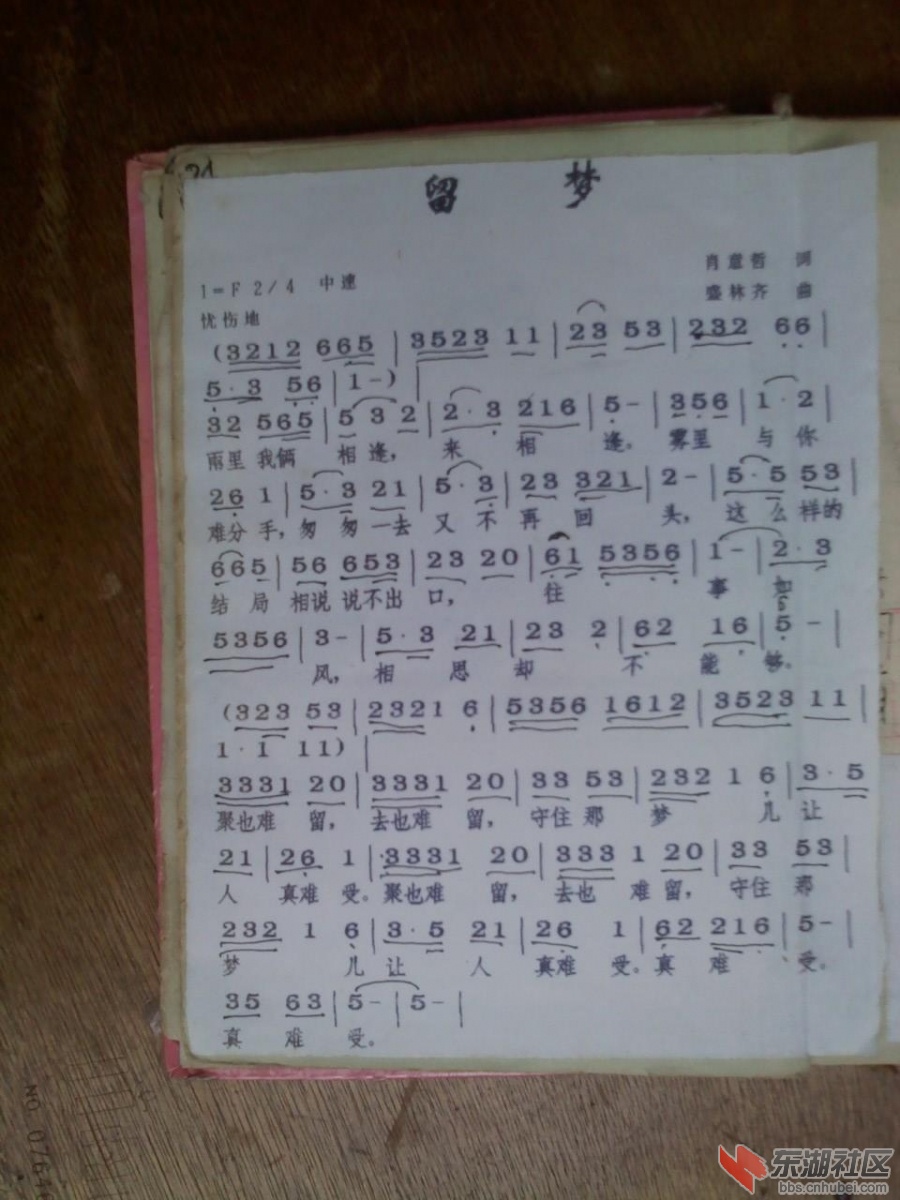 留 梦
肖意哲 词
1=F 2/4 中速
盛林齐 曲
忧伤地
(3212 665 | 3523 11 | 23 53 | 232 66 |
5·3 56 | 1-) |
32 565 | 5 3 2 | 2·3 216 | 5- | 356 | 1·2 |
雨里 我俩 相逢, 来 相 逢。 雾里 与 你
26 1 | 5·3 21 | 5·3 | 23 321 | 2- | 5·5 53 |
难分 手, 匆 匆 一去 又 不 再 回 头, 这 么 样的
665 | 56 653 | 23 20 | 61 5356 | 1- | 2·3
结 局 相说 说不出 口, 往 事 如
5356 | 3- | 5·3 21 | 23 2 | 62 16 | 5- |
风, 相 思 却 不 能 够。
(323 53 | 2321 6 | 5356 1612 | 3523 11 |
1·1 11) |
3331 20 | 3331 20 | 33 53 | 232 1 6 | 3·5
聚也难 留, 去也难 留, 守住 那 梦 儿 让
21 | 26 1 | 3331 20 | 333 1 20 | 33 53 |
人 真难 受。聚也难 留, 去也 难 留, 守住 那
232 1 6 | 3·5 21 | 26 1 | 62 216 | 5- |
梦 儿 让 人 真难 受。真 难 受。
35 63 | 5- | 5- |
真 难 受。
NO. 0764
东湖社区
bbs.cnhubei.com